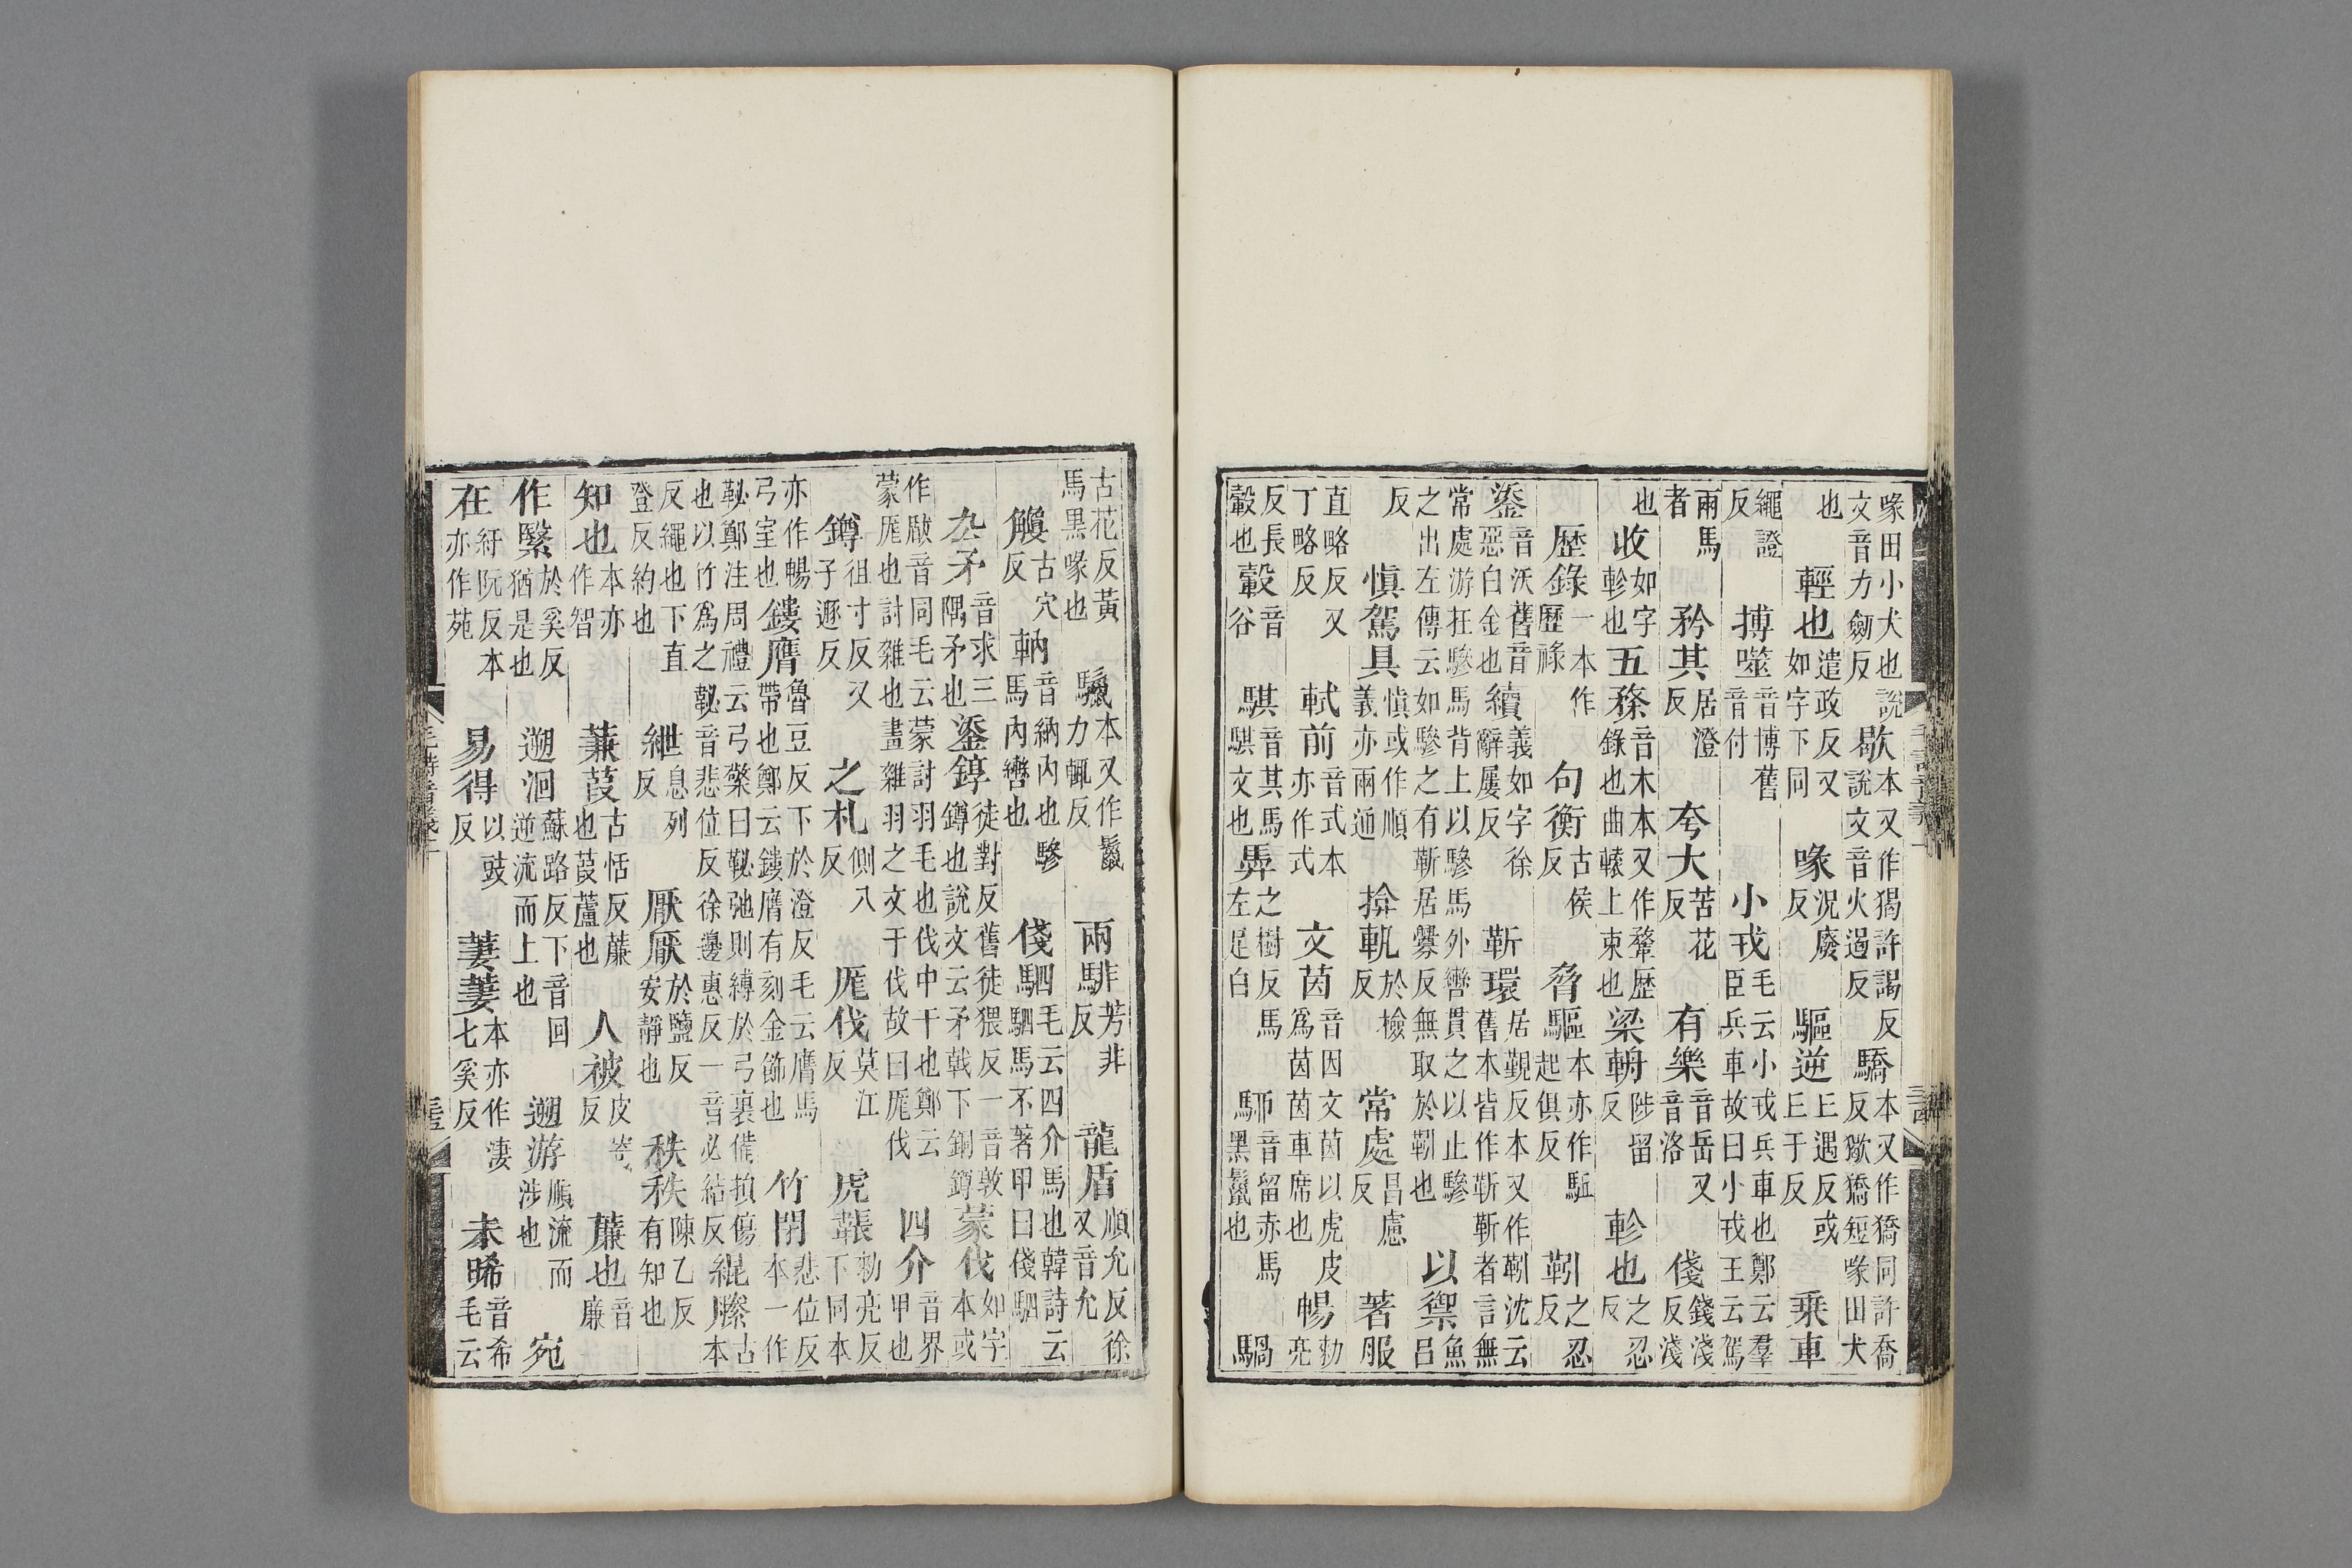 喙田小犬也說文音力劒反歇本又作猲許謁反說文音火遏反驕本又作獢同許喬反獥獢短喙田犬
也輕也遣政反又如字下同喙況廢反驅逆丘遇反或丘于反乘車
繩證反搏噬音博舊音付小戎毛云小戎兵車也鄭云羣臣兵車故曰小戎王云駕
兩馬者矜其居澄反夸大苦花反有樂音岳又音洛俴錢淺反淺
也收如字軫也五楘音木本又作鞪歷錄也曲轅上束也梁輈陟留反軫也之忍反
歷錄一本作歷祿句衡古侯反脅驅本亦作駈起俱反靷之忍反
鋈音沃舊音惡白金也續義如字徐辭屢反靳環居覲反本又作靷沈云舊本皆作靳靳者言無
常處游在驂馬背上以驂馬外轡貫之以止驂之出左傳云如驂之有靳居釁反無取於靷也以禦魚呂
反慎駕具慎或作順義亦兩通揜軓於檢反常處昌慮反著服
直略反又丁略反軾前音式本亦作式文茵音因文茵以虎皮爲茵茵車席也暢勑亮
反長轂也轂音谷騏音其馬騏文也馵之樹反馬左足白駵音留赤馬黑鬛也騧
古花反黃馬黑喙也𩧆本又作鬛力輒反兩騑芳非反龍盾順允反徐又音允
觼古穴反軜音納內也驂馬內轡也俴駟毛云四介馬也韓詩云駟馬不著甲曰俴駟
厹矛音求三隅矛也鋈錞徒對反舊徒猥反一音敦鐏也說文云矛戟下銅鐏蒙伐如字本或
作瞂音同毛云蒙討羽毛也伐中干也鄭云蒙厖也討雜也畫雜羽之文于伐故曰厖伐四介音界甲也
鐏徂寸反又子遯反之札側八反厖伐莫江反虎韔勑亮反下同本
亦作暢弓室也鏤膺魯豆反下於澄反毛云膺馬帶也鄭云鏤膺有刻金飾也竹閉悲位反本一作
䪐鄭注周禮云弓檠曰䪐弛則縛於弓裏備損傷也以竹爲之䪐音悲位反徐邊惠反一音必結反緄縢古本
反繩也下直登反約也紲息列反厭厭於鹽反安靜也秩秩陳乙反有知也
知也本亦作智蒹葭古恬反蒹也葭蘆也人被皮寄反薕也音廉
作緊於奚反猶是也遡洄蘇路反下音回逆流而上也遡游順流而涉也宛
在紆阮反本亦作苑易得以豉反萋萋本亦作淒七奚反未晞音希毛云